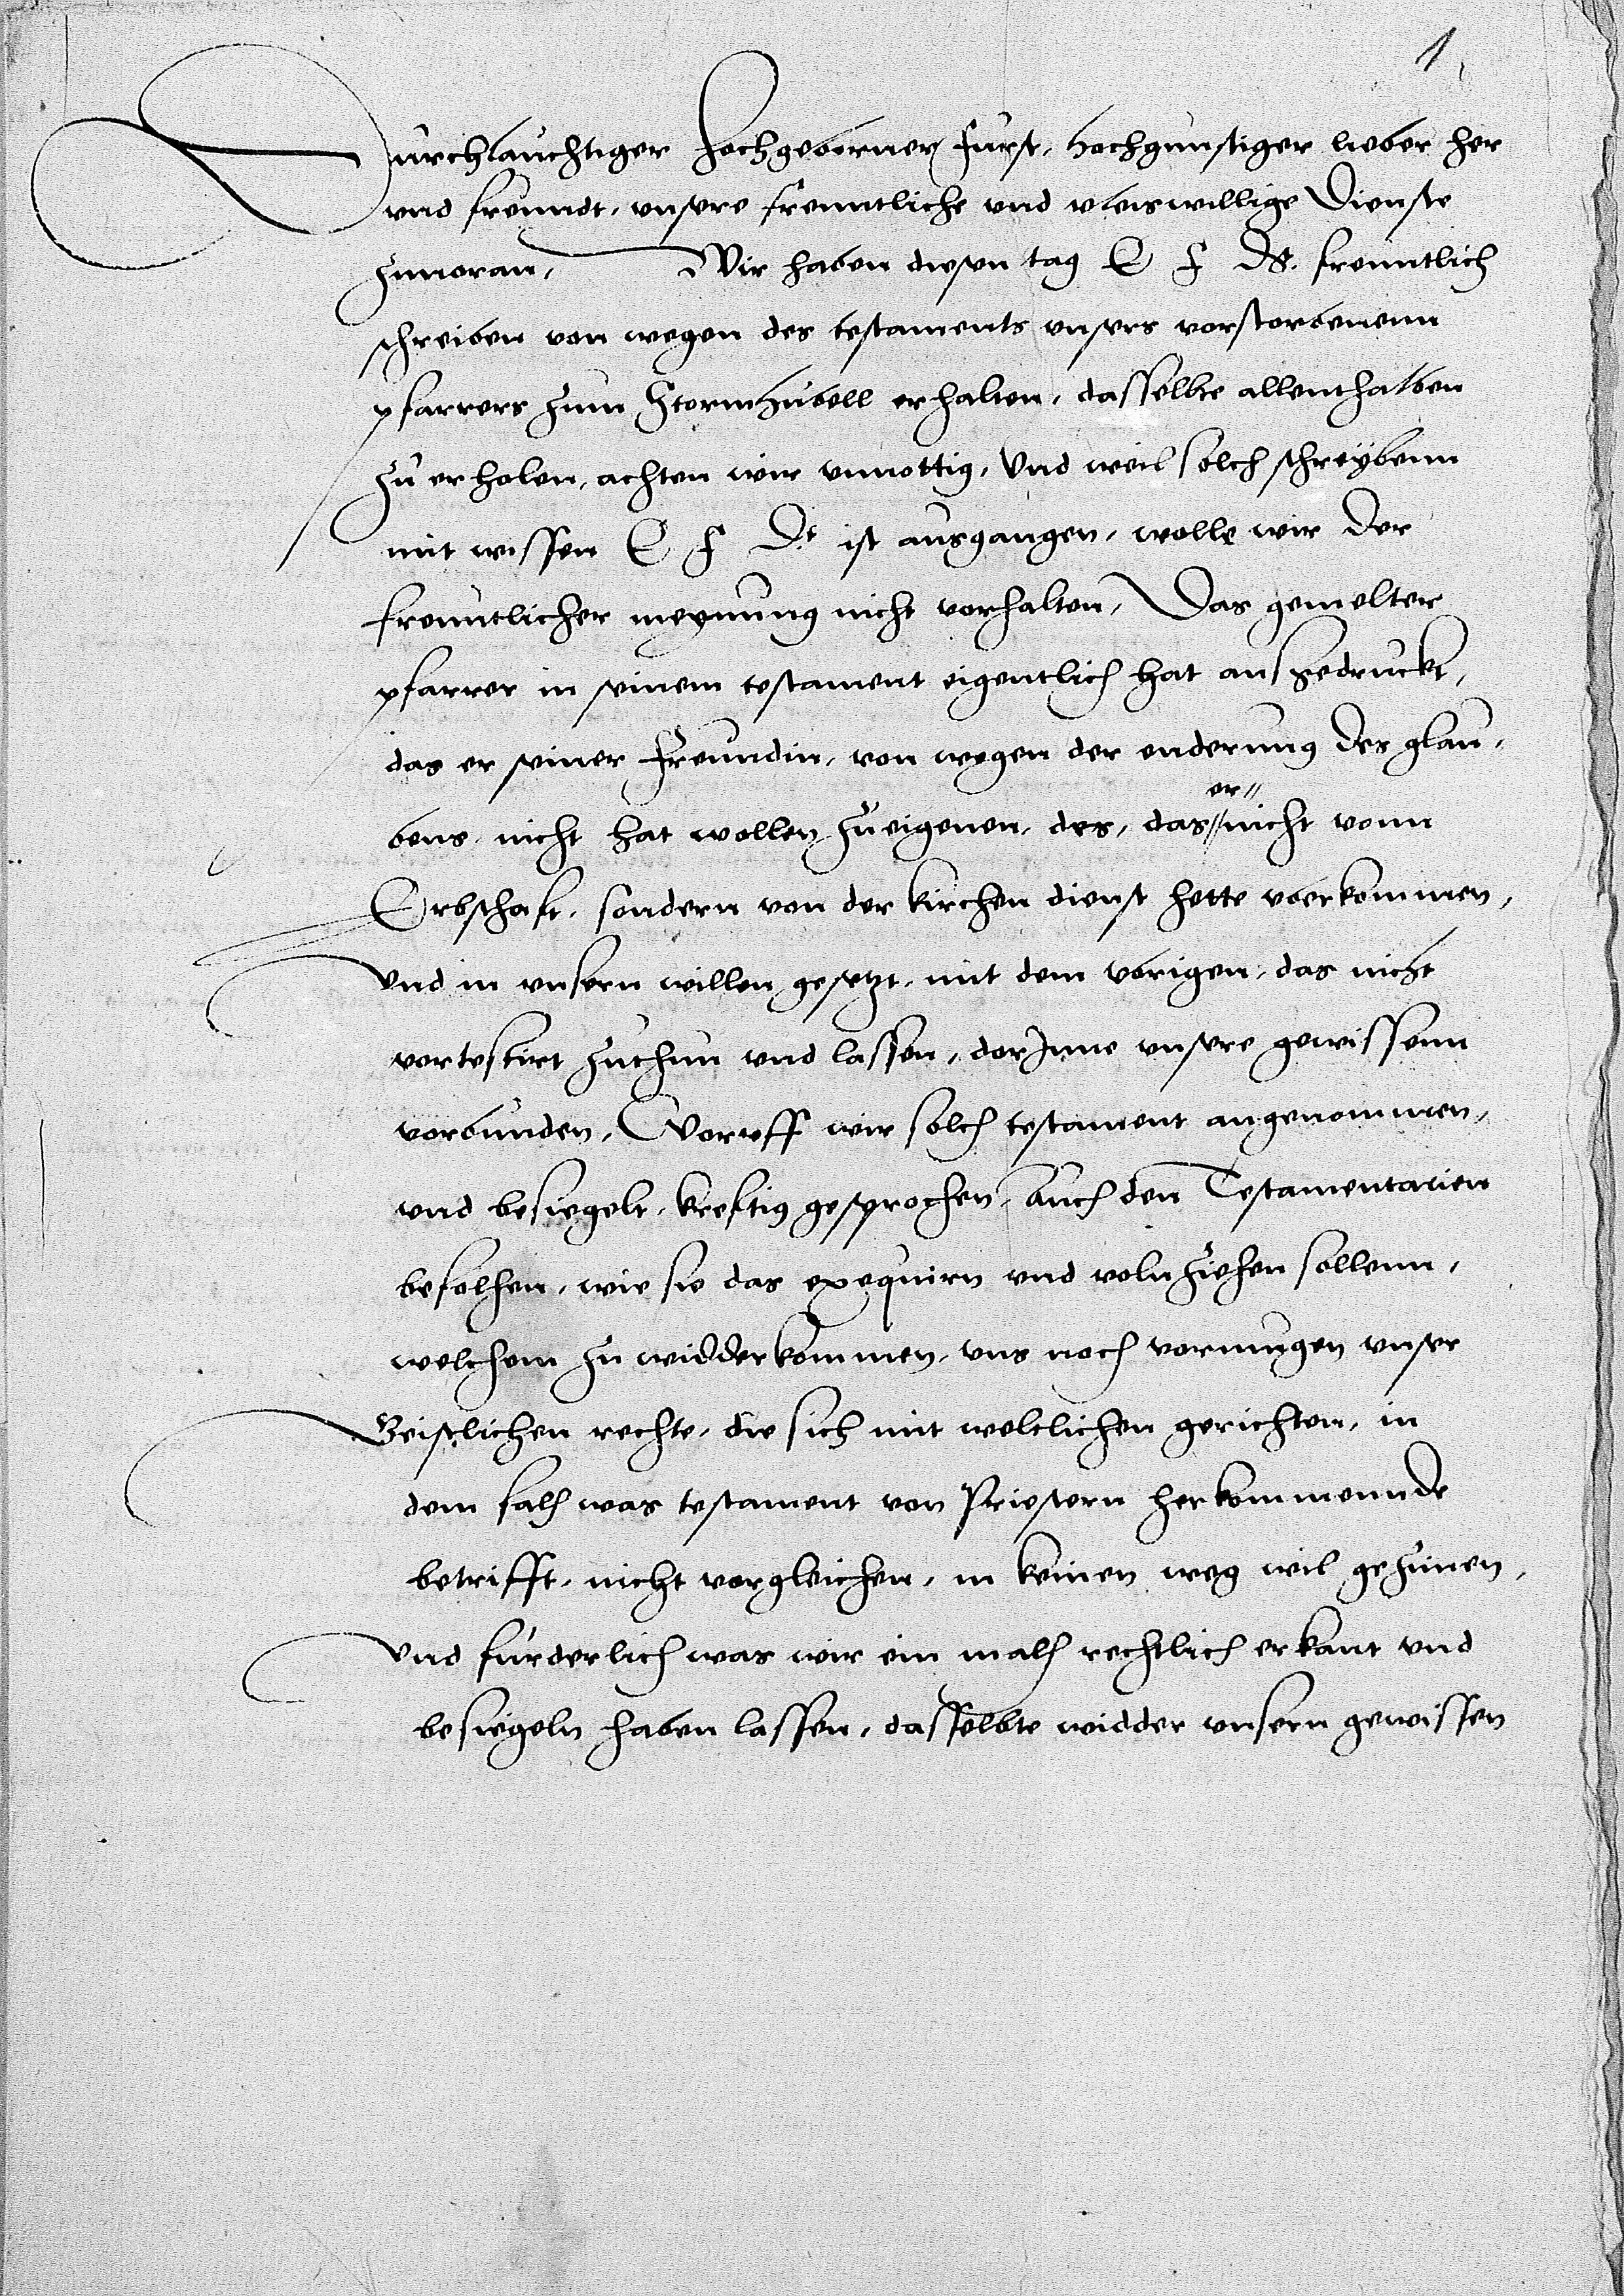 1
Durchlauchtiger Hochgeborner furst, hochgunstiger lieber her
vnd freundt, vnsere freuntliche vnd vleis willige Dienste
zuuoran, Wir haben diesen tag E F D. freuntlich
schreiben von wegen des testaments vnsers vorstorbenenn
pfarrers zum Stormhubell erhalten, dasselbte allenthalben
zu erholen, achten wir vnnottig, Vnd weil solch schreybenn
mit wissen E F D. ist ausgangen, wolle wir Der
freuntlicher meynung nicht vorhalten, Das gemelter
pfarrer in seinem testament eigentlich hat ausgedruckt,
das er seiner freundin, von wegen der enderung Des glau,
bens, nicht hat wollen zueigenen, des, das er nicht vonn
Erbschaft, sondern von der kirchen dienst hette vberkommen,
Vnd in vnsern willen gesetzt, mit dem vbrigen, das nicht
vortestirt zuthun vnd lassen, dorJnne vnsere gewissenn
vorbunden, Woruff wir solch testament angenommen,
vnd besiegelt, kreftig gesprochen, Auch den Testamentarien
befolhen, wie sie das exequirn vnd voln ziehen sollenn,
welchem zu widderkommen, vns noch vormugen vnser
Geistlichen rechte, die sich mit weltlichen gerichten, in
dem falh was testament von Priestern herkommennde
betrifft, nicht vorgleichen, in keinen weg wil gezimen,
Vnd furderlich was wir ein malh rechtlich erkant vnd
besiegeln haben lassen, dasselbte widder vnsern gewissen